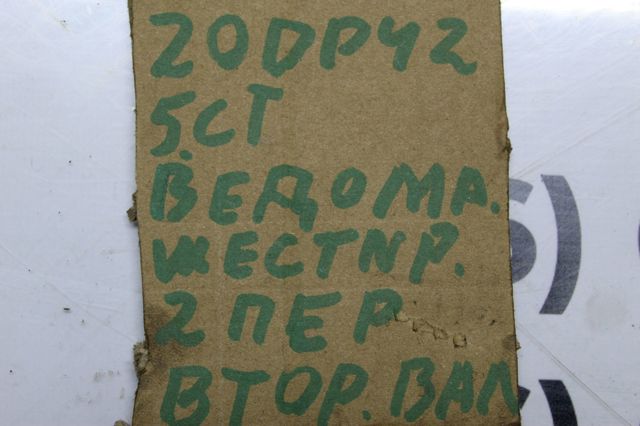 20DP42
5.СТ
ВЕДОМА.
ШЕСТNР.
2 ПЕР
ВТОР. ВАЛ
S)